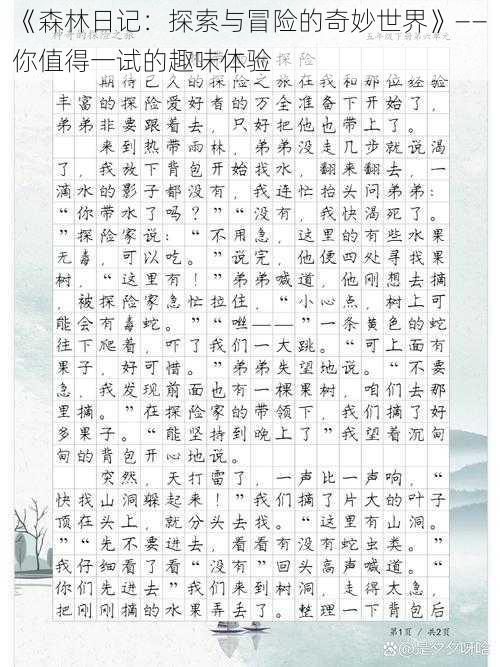 《森林日记：探索与冒险的奇妙世界》——
神奇的探险之旅
五年级下册第六单元
你值得一试的趣味体验
期待已久的探险之旅在我和那位经验
丰富的探险爱好者的万全准备下开始了，
弟弟非要跟着去，只好把他也带上了。
来到热带雨林，弟弟没走几步就说渴
了，我放下背包开始找水，翻来翻去，一
滴水的影子都没有，我连忙抬头问弟弟：
“你带水了吗？”“没有，我快渴死了。
”探险家说：“不用急，这里的有些水果
无毒，可以吃。”说完，他便四处寻找果
树，“这里有！”弟弟喊道，他刚想去摘
，被探险家急忙拉住，“小心点，树上可
能会有毒蛇。”“咝——”一条黄色的蛇
往下爬着，吓了我们一大跳。“可上面有
果子，好可惜。”弟弟失望地说。“不要
急，我发现前面也有一棵果树，咱们去那
里摘。”在探险家的带领下，我们摘了好
多果子。“能坚持到晚上了”我望着沉甸
甸的背包开心地说。
突然，天打雷了，一声比一声响，“
快找山洞躲起来！”我们摘了片大的叶子
顶在头上，就分头去找。“这里有山洞。
”“先不要进去，看看有没有蛇虫类。”
我仔细看了看“没有”回头高声喊道。“
你们先进去”我们来到树洞，走得太急，
把刚刚摘的水果弄丢了。整理一下背包后
第1页 / 共2页
@是夕夕呀哈